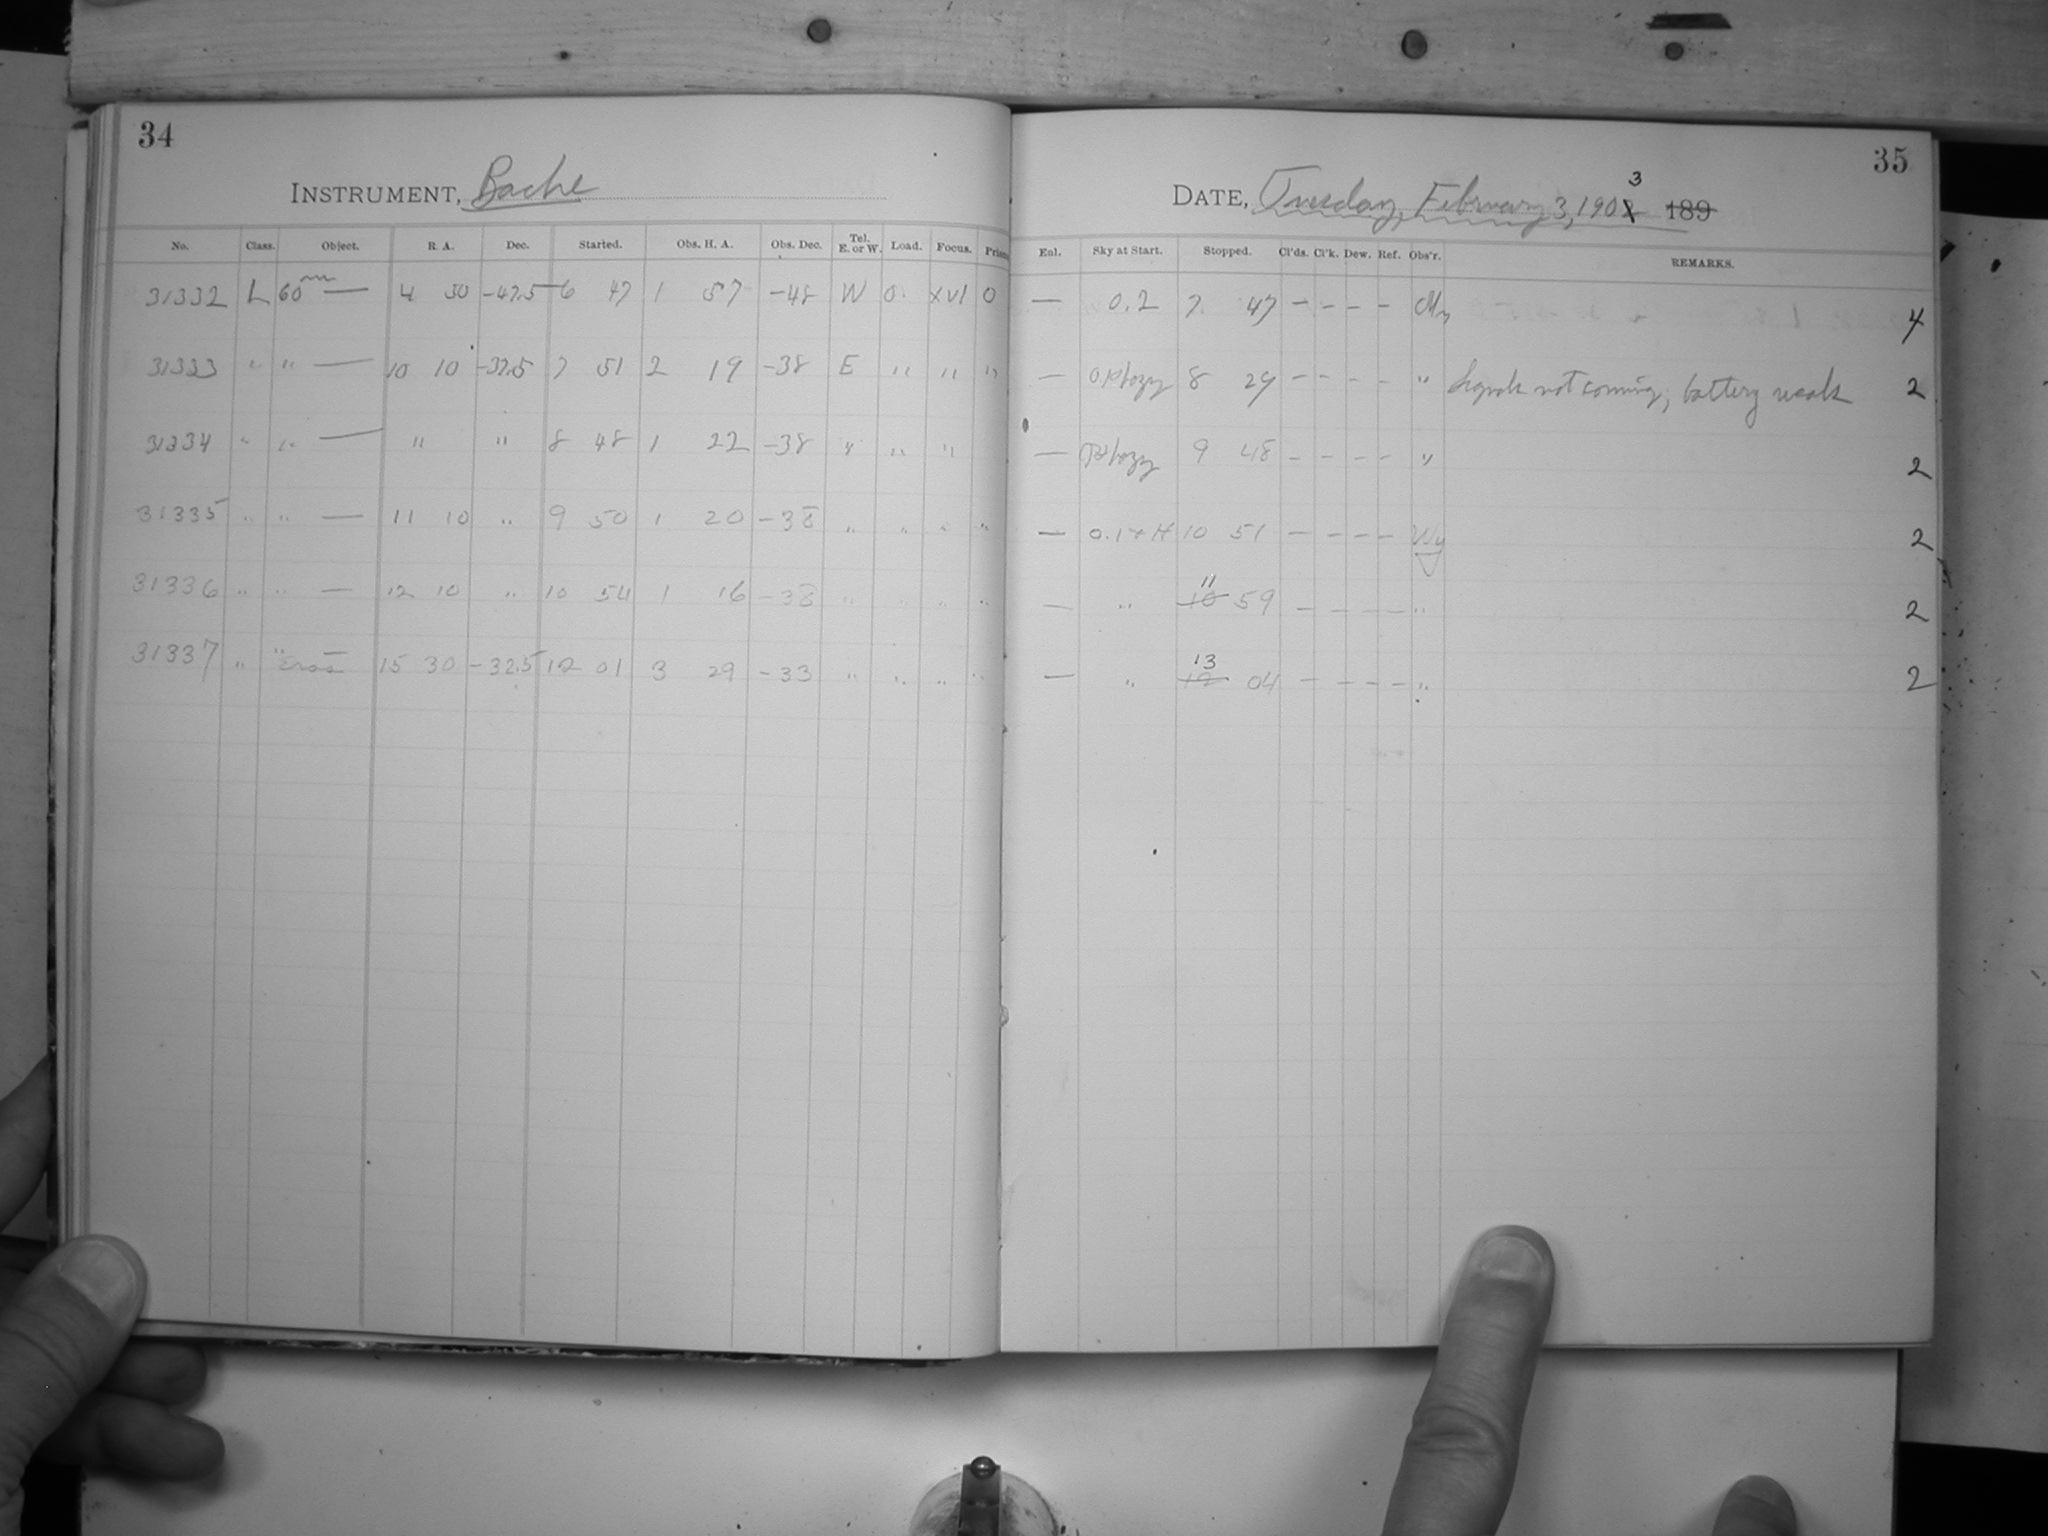 34
INSTRUMENT, Bache
No. Class. Object. R. A. Dec. Started. Obs. H. A. Obs. Dec. Tel. E. or W. Load. Focus. Prism
31332 L 60m — 4 50 -47.5 6 47 1 57 -48 W 0. XVI 0
31333 " " — 10 10 -37.5 7 51 2 19 -38 E " " "
31334 " " — " " 8 48 1 22 -38 " " "
31335 " " — 11 10 " 9 50 1 20 -38 " " " "
31336 " " — 12 10 " 10 54 1 16 -38 " " " "
31337 " " Eros 15 30 -32.5 12 01 3 29 -33 " " " "
35
DATE, Tuesday, February 3, 1903 189
Enl. Sky at Start. Stopped. Cl'ds. Cl'k. Dew. Ref. Obs'r. REMARKS.
— 0.2 7 47 — — — — 4
— 8 29 — — — — " Signals not coming, battery weak 2
— 9 48 — — — — " 2
— 0.1 + H 10 51 — — — — 2
— " 10 11 59 — — — — " 2
— " 12 13 04 — — — — " 2